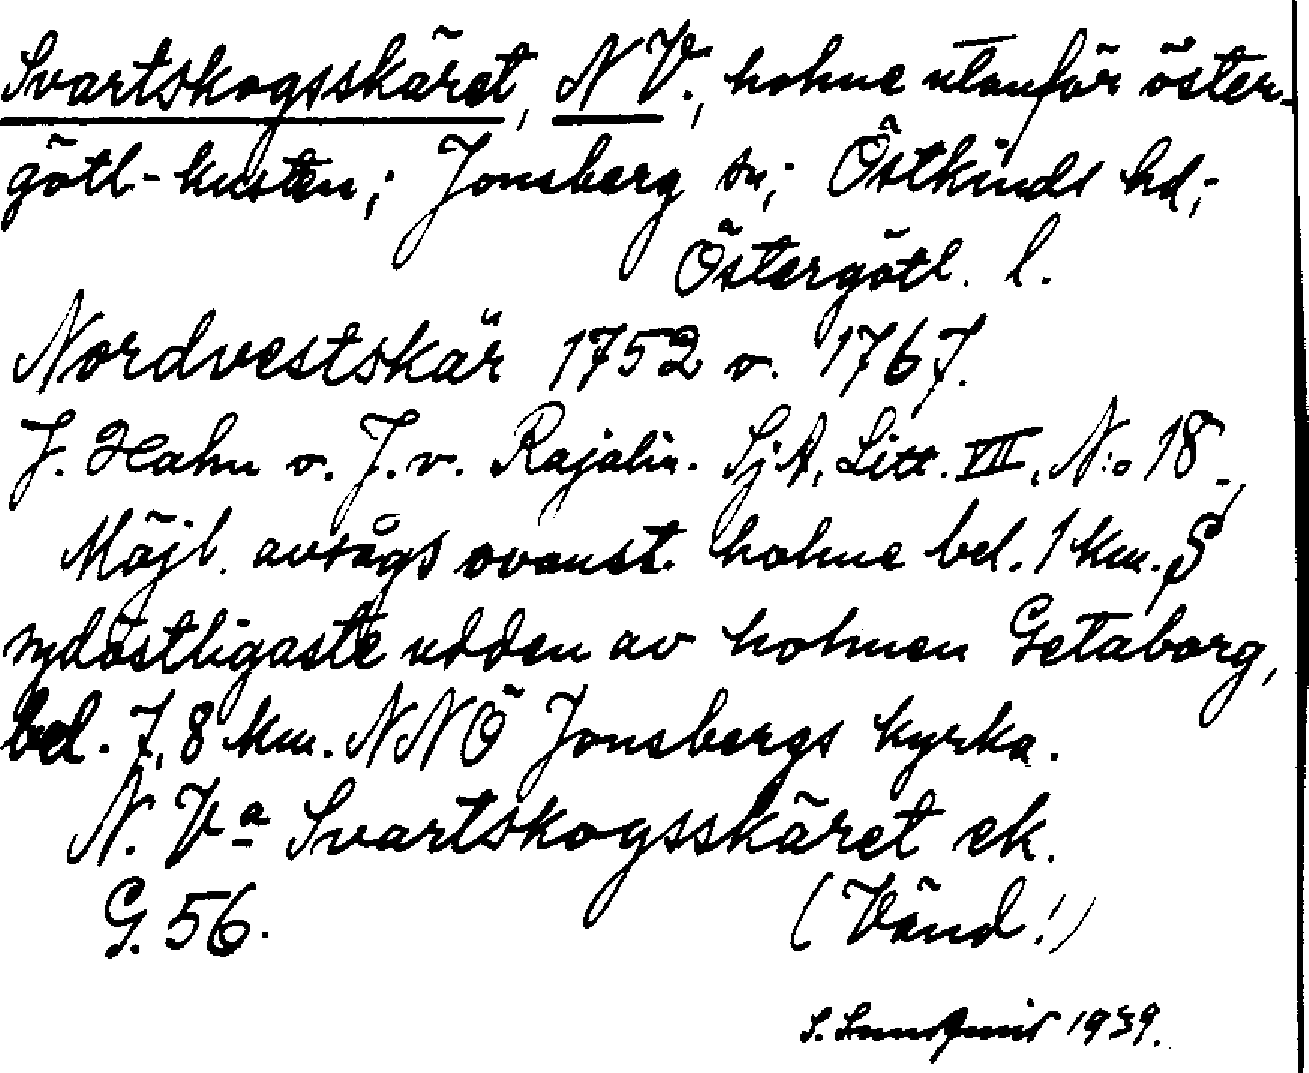 Svartskogsskäret, N V., holme utanför öster-
götl-kusten; Jonsberg sn; Östkinds hd;
Östergötl. l.
Nordvestskär 1752 o. 1767.
J. Hahn o. J. v. Rajalin. SjA, Litt. VII, N:o 18.,
Möjl. avsågs ovanst. holme bel. 1 km. S
sydöstligaste udden av holmen Getaborg,
bel. 7,8 km. NNÖ Jonsbergs kyrka.
N. Va Svartskogsskäret ek.
G. 56. (Vänd!)
1939.